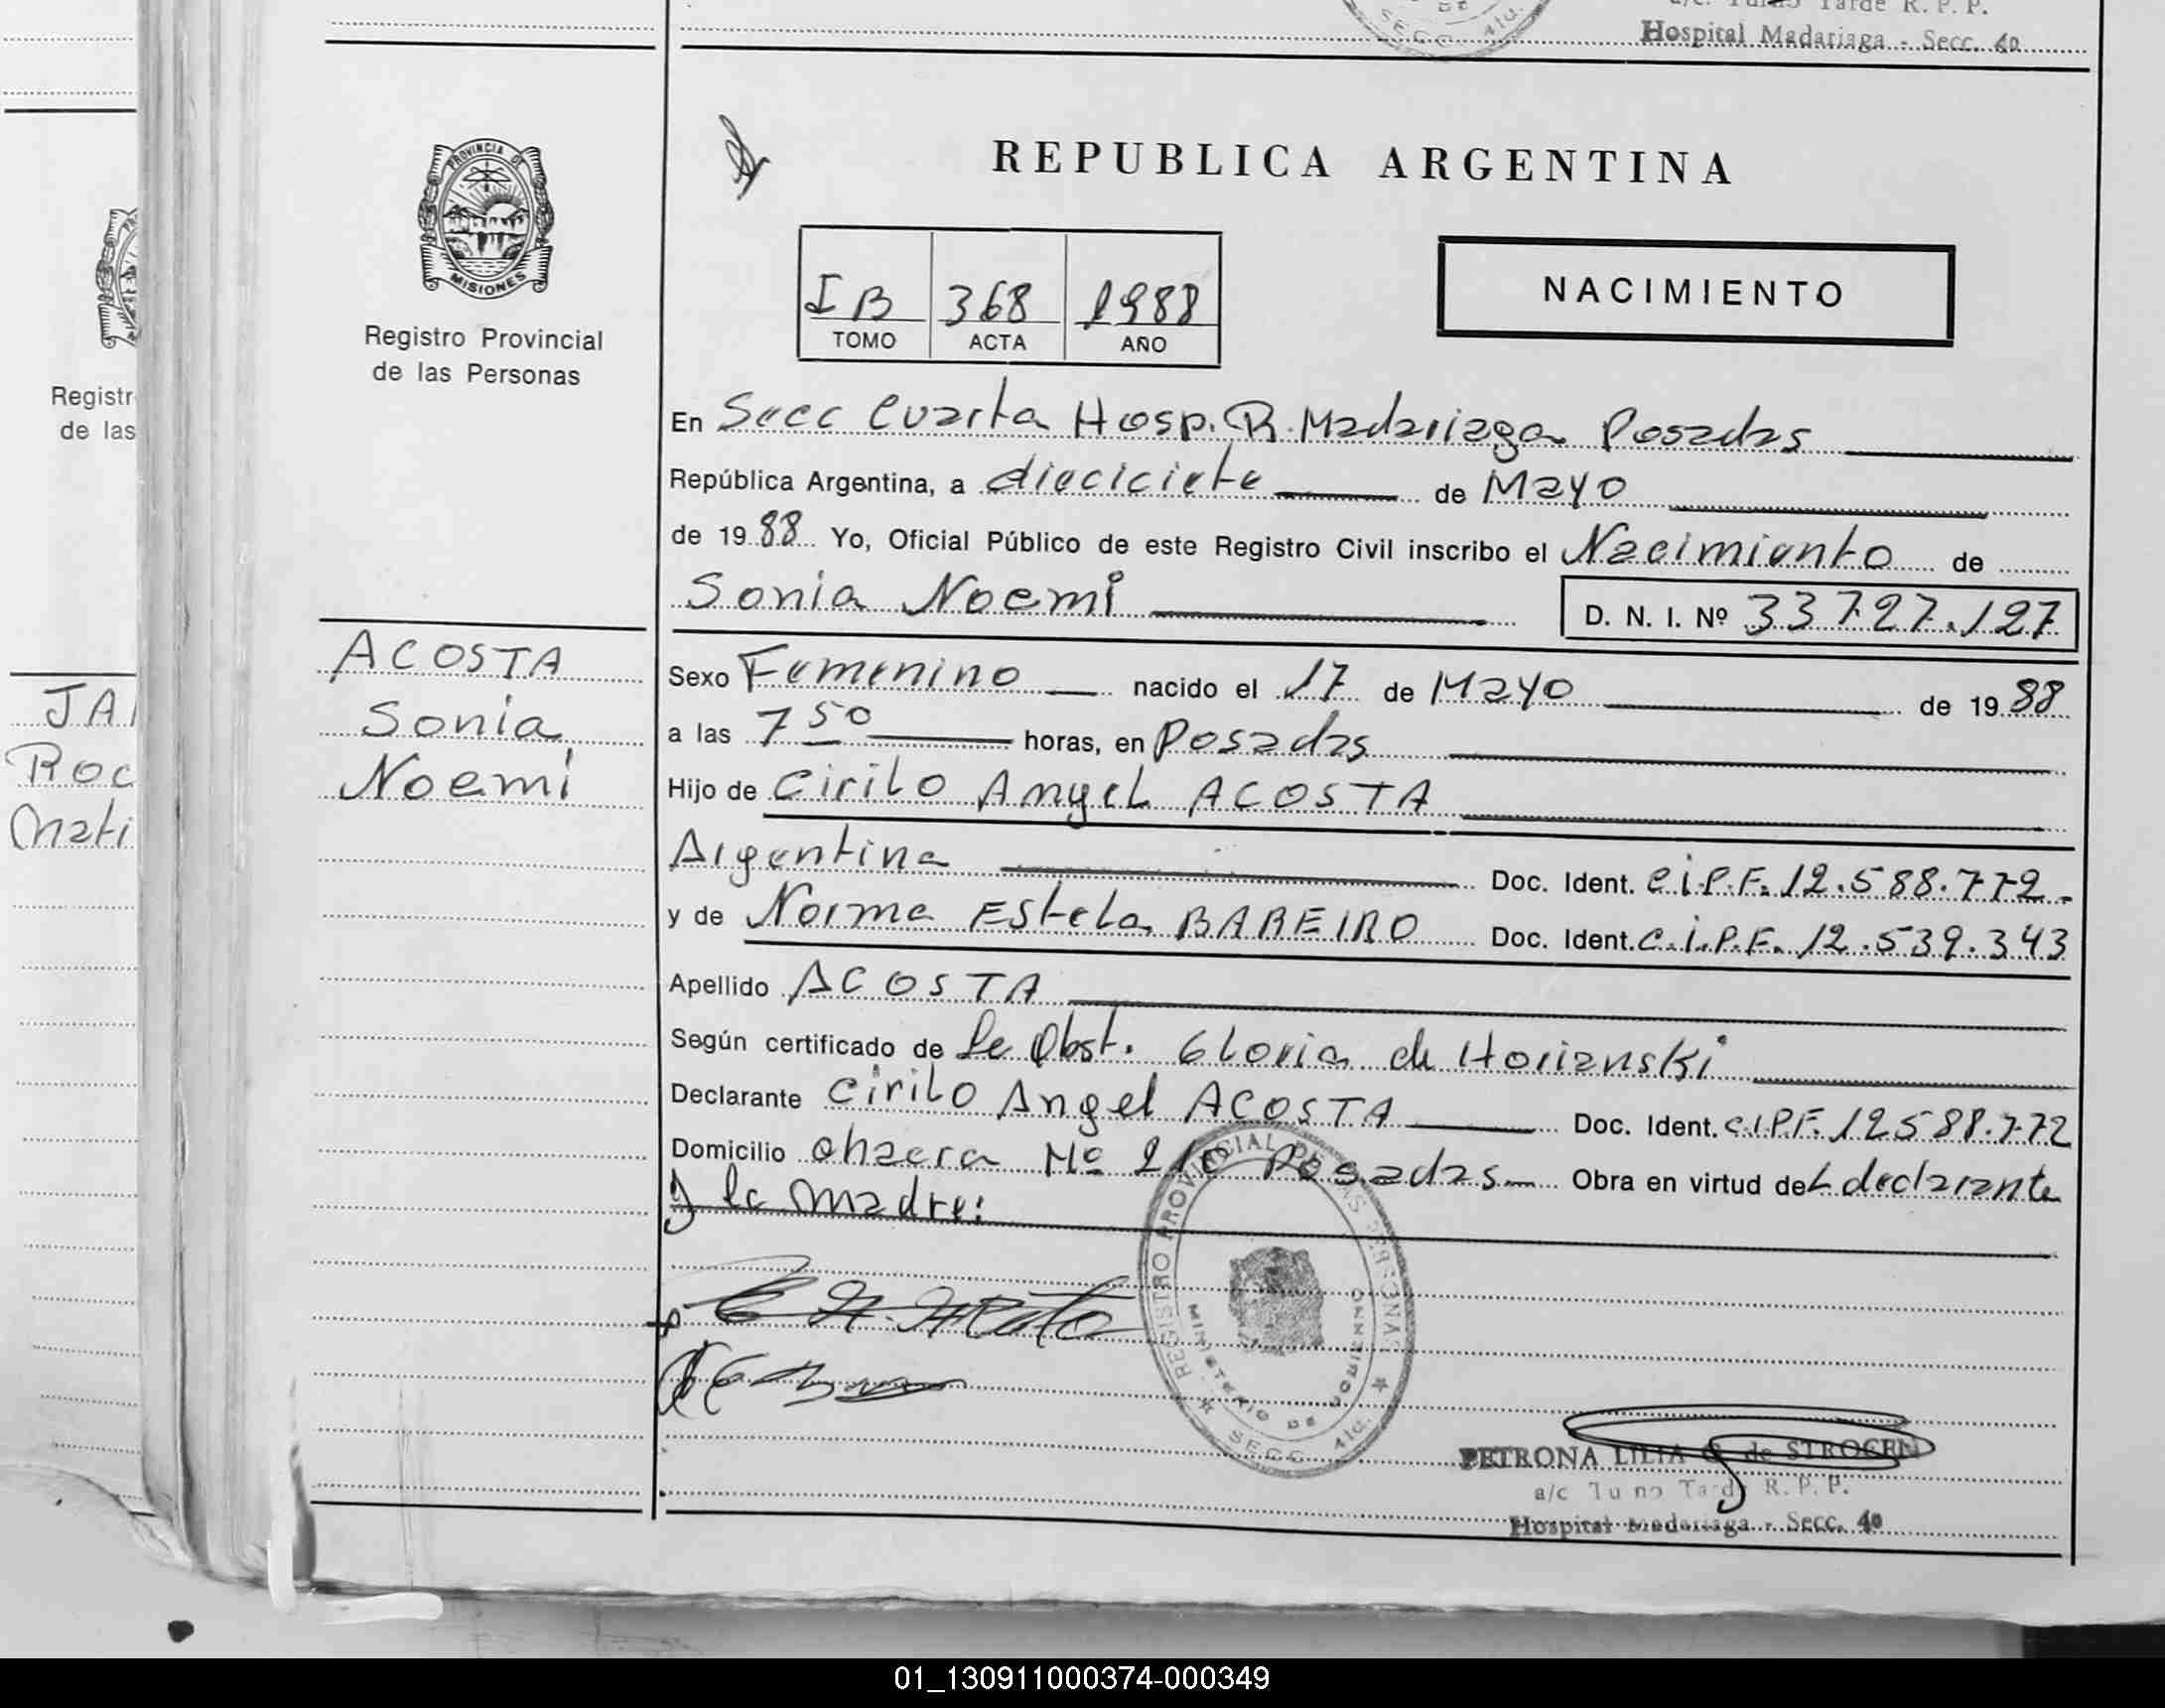 a/c. Turno Tarde R. P. P.
Hospital Madariaga - Secc. 4a
DE
SECC. 4ta.
PROVINCIA DE
MISIONES
Registro Provincial
de las Personas
Registr
de las
JA
Roc
Mati
ACOSTA
Sonia
Noemi
REPUBLICA ARGENTINA
I B 368 1988
TOMO ACTA AÑO
NACIMIENTO
En Secc Cuarta Hosp. R. Madariaga Posadas
República Argentina, a dieciciete de Mayo
de 1988 Yo, Oficial Público de este Registro Civil inscribo el Nacimiento de
Sonia Noemi D. N. I. Nº 33727.127
Sexo Femenino nacido el 17 de Mayo de 1988
a las 7 50 horas, en Posadas
Hijo de Cirilo Angel ACOSTA
Argentina Doc. Ident. C.i.P.F. 12.588.772.
y de Norma Estela BAREIRO Doc. Ident. C.i.P.F. 12.539.343
Apellido ACOSTA
Según certificado de La Obst. Gloria de Horianski
Declarante Cirilo Angel ACOSTA Doc. Ident. C.I.P.F. 12588.772
Domicilio chacra Nº 210 Posadas Obra en virtud del declarante
y la Madre:
REGISTRO PROVINCIAL DE LAS PERSONAS
MINISTERIO DE GOBIERNO
SECC. 4ta.
PETRONA LILIA G. de STROCEN
a/c Turno Tarde R. P. P.
Hospital Madariaga - Secc. 4a
01_130911000374-000349